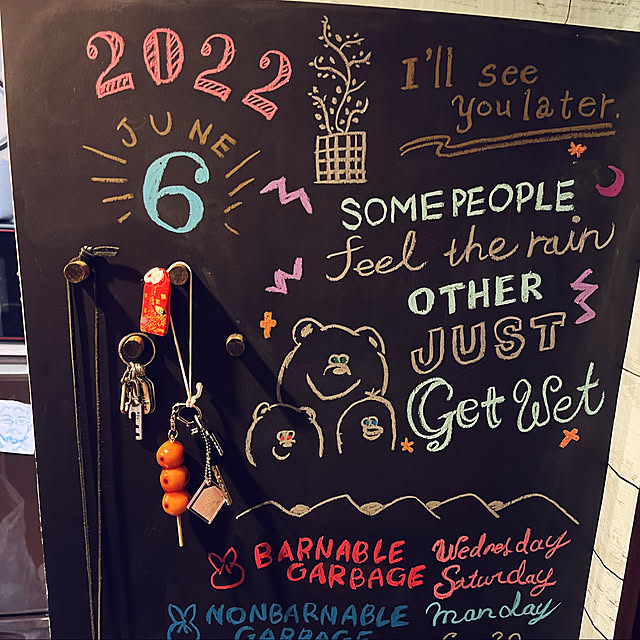 2022
JUNE
6
I'll see
you later.
SOME PEOPLE
feel the rain
OTHER
JUST
Get Wet
BARNABLE
GARBAGE
Wednesday
Saturday
NONBARNABLE
GARBAGE
Manday